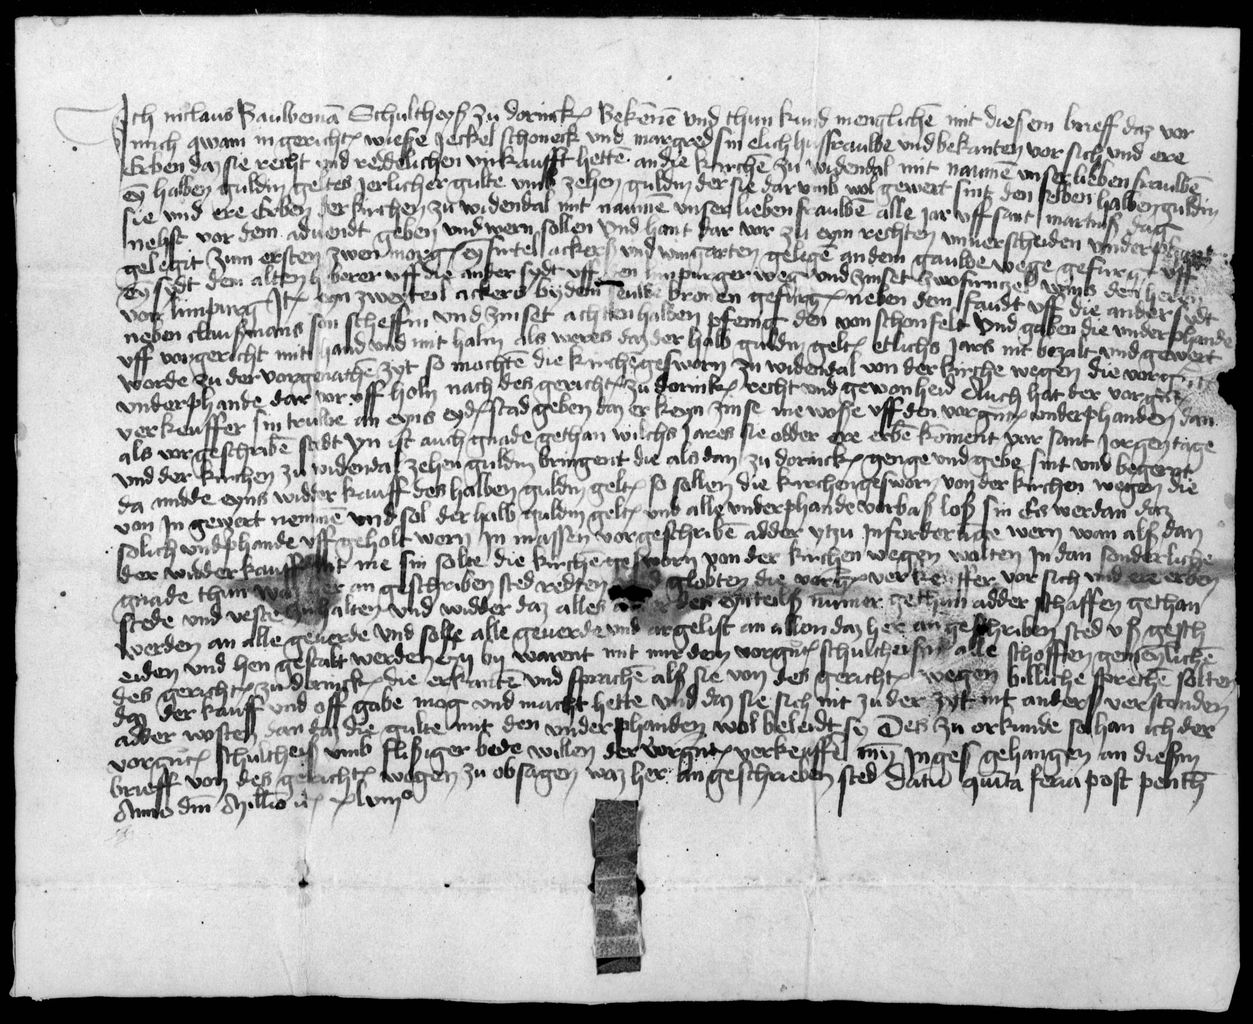 Ich niclaus Baulbemā Schultheyß zu dorinck Bekēnē und thun kund menglichē mit diesem brieff daz vor
mich qwam in gericht wieße Jeckel schoneck und margred sin elich husfraulbe und bekanten vor sich und ere
Erben daz sie recht und reddelichen virkaufft hette an die kirchē zu widendal mit namē unser lieben fraulbē
Eȳ halben guldin geltes jerlicher gulte umb zehen guldin der sie dar umb wol gewert sint den selben halben guldin
sie und ere Erben der kirchen zu widendal mit namē unser lieben fraulbē alle jar uff sant martins dag
nehst vor dem advendt geben und wern sollen und hant dar vor zu eym rechten unverscheiden underphant
gelegit zum ersten zwen morg eȳ firtel ackers und wingarten gelegē an dem gaulbe wege gefurg uff
Eȳ sydt dem alten uff die ander sydt uff den limpurger weg und zinset zwo firnczel wins den heren
von limpurg It eyn zweyteil ackers by dem bronen gefurg neben dem faudt uff die ander sydt
neben clausmans son scheffin und zinset achten halben pfenig den von schonfelt und gaben die underphande
uff vor gericht mit hand und mit halm als weres daz der halb guldin gelt etlichs jars nit bezalt und gewert
worde zu der vorgenāthē zyt so mochten die kirchēgesworn zu widendal von der kirche wegen die vorg
underphande dar vor uff holn nach des gericht zu dorinck recht und gewonheid Auch hat der vorgnt
verkeuffer sin trulbe an eyns eyd stad geben daz er keyn zinse me woße uff den vorgnt underphanden dan
als vorgeschribē stedt yn ist auch gnade gethan wilchs jares sie odder ere erbē komēt vor sant jorgen tage
und der kirchen zu widendal zehen guldin bringent die als dan zu dorinck genge und gebe sint und begerent
da midde eyns widder kauff des halben guldin gelt so sollen die kirchengesworn von der kirchen wegen die
von jn gewert nemmē und sol der halb guldin gelt und alle underphande vorbaß loß sin Eis werdan daz
solich undphande uff geholt wern jn massen vorgeschribē adder ytzu jnforderūge wern wan alß dan
der widder kauff nit me sin solte die kirchēgesworn von der kirchen wegen wolten jn dan sonderliche
gnade thun an geschriben sted redten globten die vorgn verkeuffer vor sich und ere erben
stede und veste halten und widder daz alles des eynteilß nūmer gethun adder schaffen gethan
werden an alle geuerde und solle alle geuerde und argelist an allen daz her an geschriben sted uß gesch
eiden und hen gestalt werden by warent mit mir dem vorgnt schultheisin alle schoffen gemēnlichē
des gericht zu dorinck die erkantē und sprachē alß sie von des gericht wegen billiche sprechē solten
daz der kauff und off gabe mog und macht hette und daz sie sich nit zu der zyt nit anders verstonden
adder wosten dan daz die gulte mit den underphanden wol beleidt sȳ Des zu orkunde so han ich der
vorgnt schultheis umb flißiger bede willen der vorgnt verkeuffē mȳ jngeß gehangen an diesin
brieff von des gericht wegen zu obsagen waz her an geschrieben sted Datū quīta feria post penth
Anno dm Millio